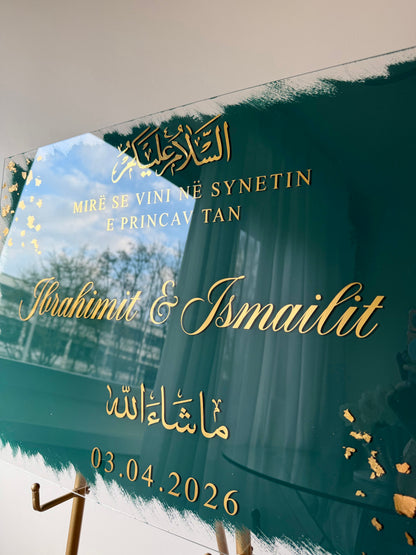 السَّلَامُ عَلَيْكُمْ
MIRË SE VINI NË SYNETIN
E PRINCAV TAN
Ibrahimit & Ismailit
مَاشَاءَ اللّٰه
03.04.2026